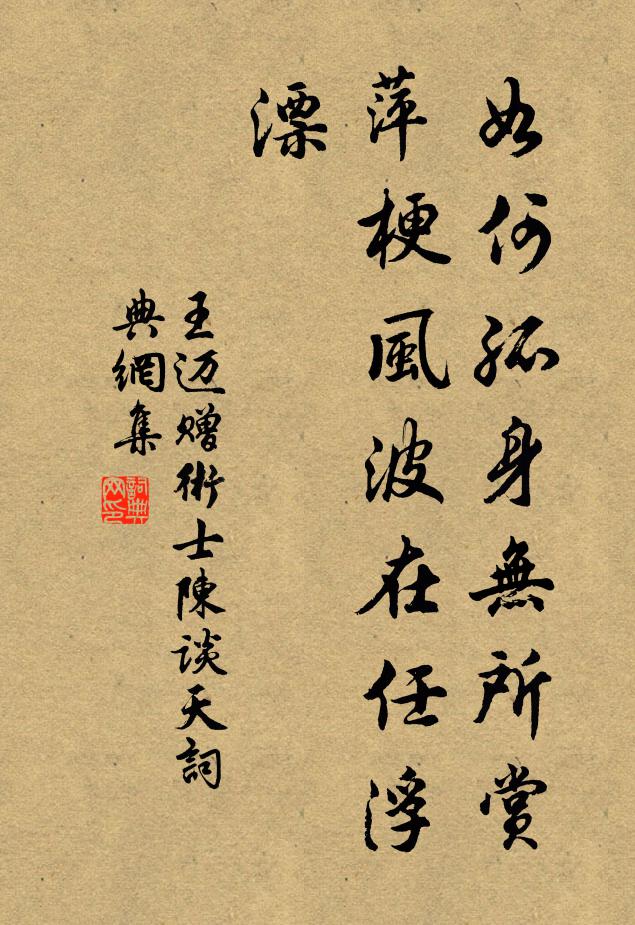 如何孤身無所赏
萍梗風波在任浮
漂
王迈赠術士陳谈天詞
典網集
詞典网印